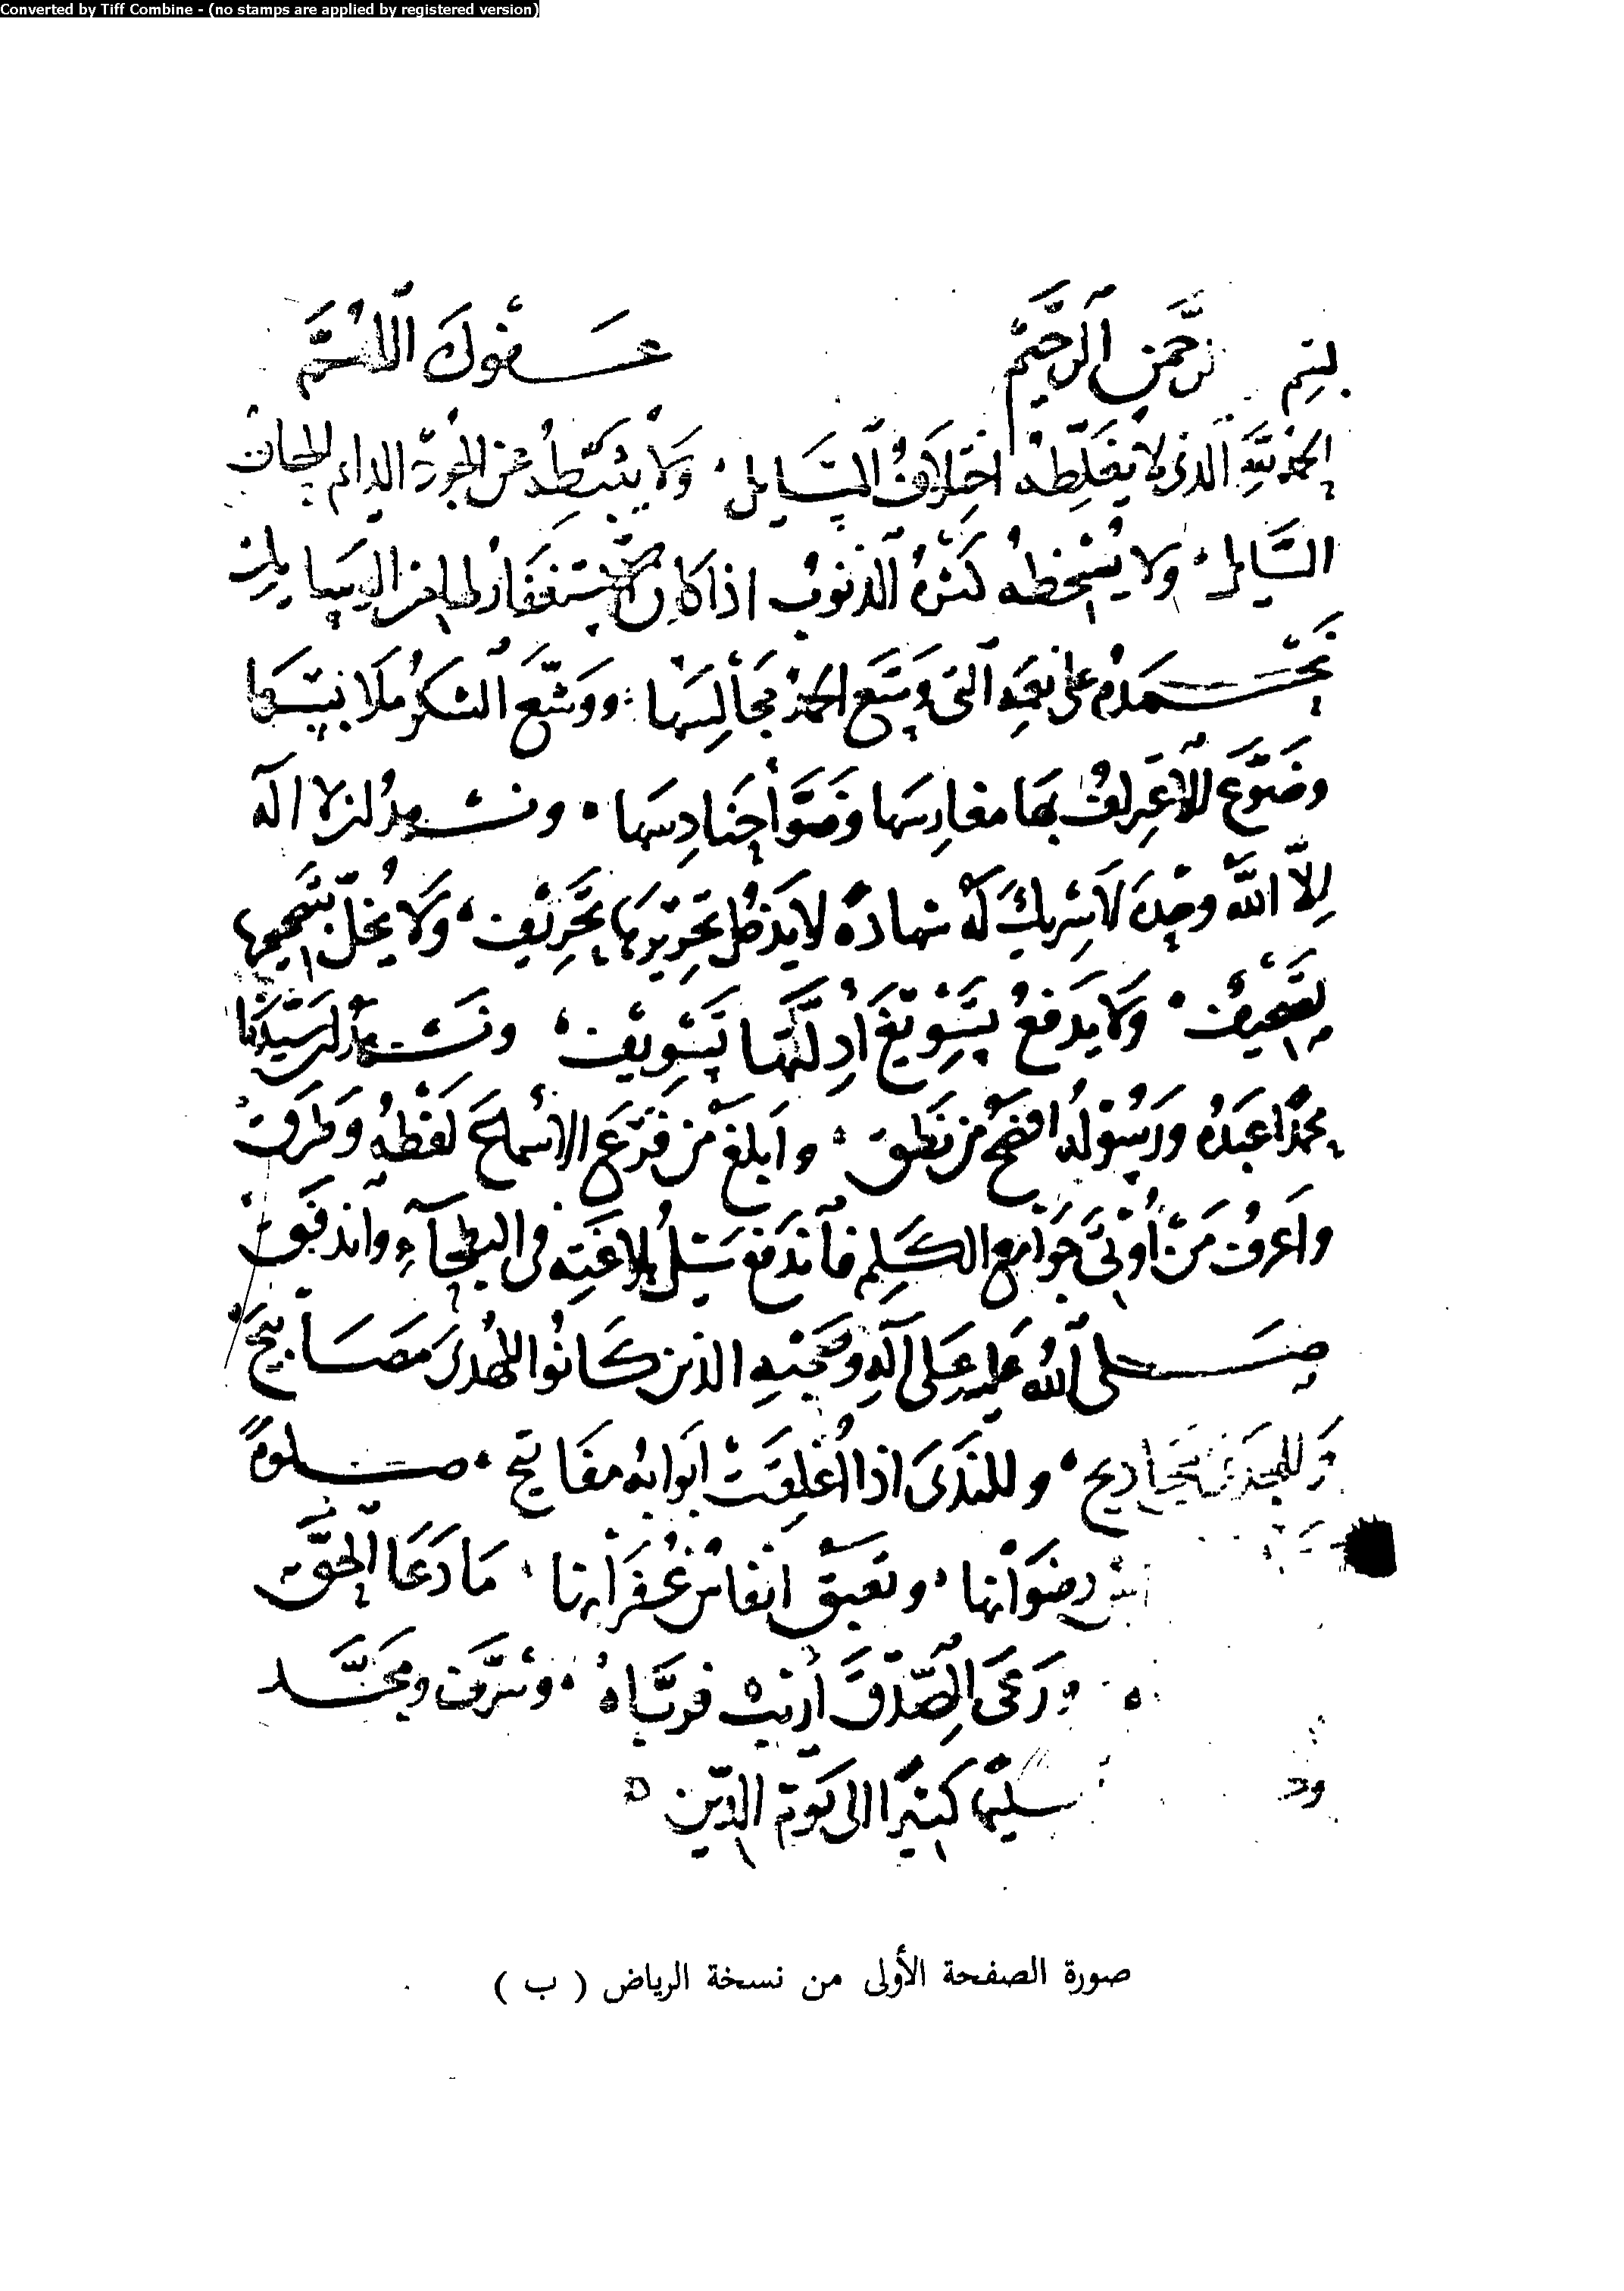 Converted by Tiff Combine - (no stamps are applied by registered version)
بسم الرَّحمن الرَّحيم عفوك اللَّهُمَّ
الحمد للهِ الذى لا يغلّطه اختلافُ المسَايل . ولا يثبّطه عن الجود الدايم
السَّايل . ولا يسخطه كثرة الذنوب اذا كان الاستغفار لها من الوسايل
نحمده على نعمه التى وسّع الحمد مجالسها . ووشّع الشكر ملابسها
وضوّع الاعتراف بها مغارسها وضوَّأ حنادسها . ونشهد ان لا اله
الّا اللّه وحده لا شريك له شهادة لا يدخل تحريرها تحريف . ولا يخلّ بتصحيحها
تصحيف . ولا يدفع بتسويغ ادلّتها تسويف . ونشهد ان سيّدنا
محمدًا عبده ورسوله افصح من نطق . وابلغ من قرّع الاسماع لفظه وطرق
واعرف من أوتى جوامع الكلم فاندفع سيل بلاغته فى البطحآء واندفق
صلى اللّه عليه وعلى آله وصحبه الذين كانوا للهدى مصابيح
وللجدى مجاديح . وللندى اذا أغلقت ابوابه مفاتيح . صلوةً
رضوانها . وتعبق انفاس غفرانها . ما دعا الحقّ
ورعى الصّدق فربّاه . وشرّف ومجّد
كثيرًا الى يوم الدّين
صورة الصفحة الأولى من نسخة الرياض ( ب )